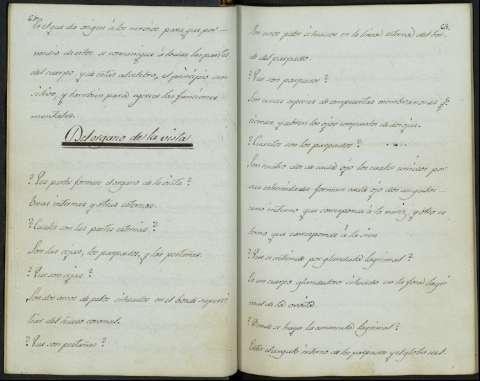 es el que da origen á los nervios para que por
medio de estos se comunique á todas las partes
del cuerpo y de estas al cerebro, el principio sen
sitivo, y tambien para ejercer las funciones
mentales.
Del organo de la vista
? Que partes forman el organo de la vista?
Unas internas y otras esternas.
? Cuales son las partes esternas?
Son las cejas, los parpados, y las pestañas.
? Que son cejas?
Son dos arcos de pelos situados en el borde superci
liar del hueso coronal.
? Que son pestañas?
Son unos pelos situados en la linea esterna del bor
de del parpado.
? Que son parpados?
Son unas especies de compuertas membranosas q.
cierran y abren los ojos compuestos de
? Cuantos son los parpados?
Son cuatro dos de cada ojo los cuales unidos por
sus estremidades forman cada ojo dos angulos
uno interno que corresponde á la nariz, y otro es
terno que corresponde á la sien
? Que se entiende por glandula lagrimal?
Es un cuerpo glanduloso situado en la fosa lagri
mal de la orvita.
? Donde se haya la caruncula lagrimal?
Entre el angulo interno de los parpados y el globo del